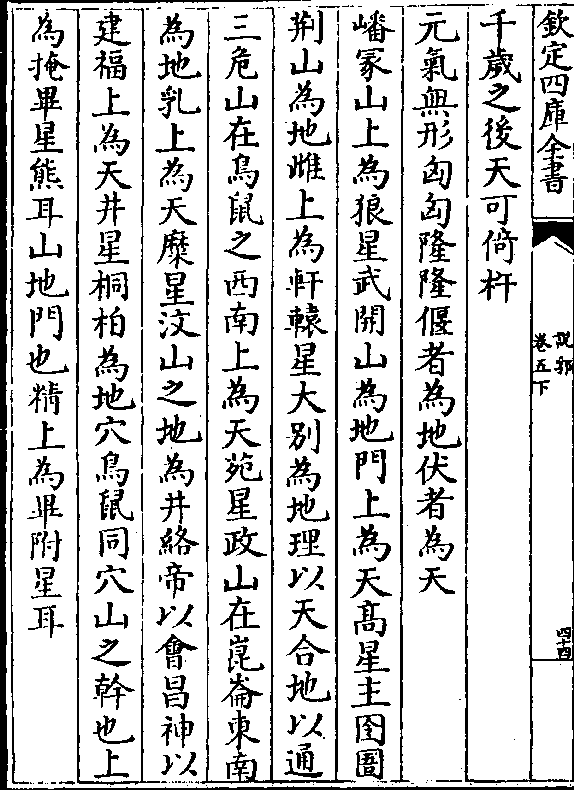 欽定四庫全書
說郛
卷五下
四十四
千歲之後天可倚杵
元氣無形匈匈隆隆偃者為地伏者為天
嶓冢山上為狼星武開山為地門上為天髙星主囹圄
荆山為地雌上為軒轅星大别為地理以天合地以通
三危山在鳥鼠之西南上為天苑星政山在崑崙東南
為地乳上為天糜星汶山之地為井絡帝以會昌神以
建福上為天井星桐柏為地穴鳥鼠同穴山之幹也上
為掩畢星熊耳山地門也精上為畢附星耳